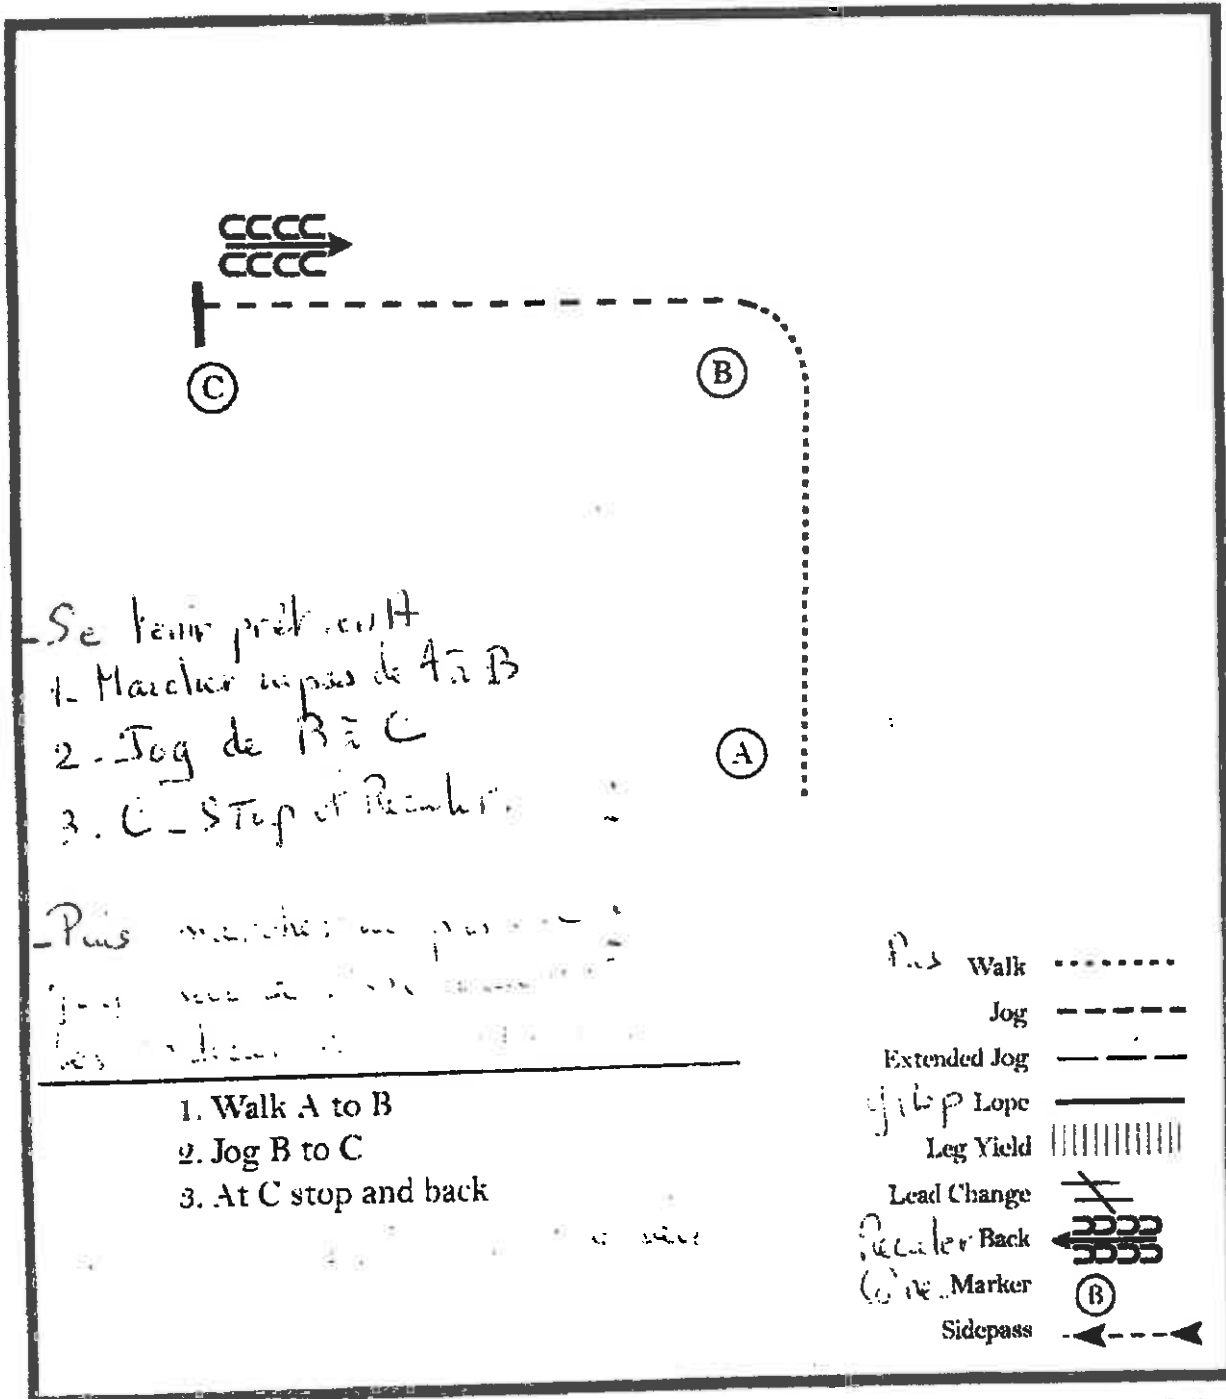 C
B
A
- Se tenir prêt en A
1- Marcher au pas de A à B
2 - Jog de B à C
3. C - STOP et Reculer.
- Puis marcher au pas
1. Walk A to B
2. Jog B to C
3. At C stop and back
Pas Walk
Jog
Extended Jog
galop Lope
Leg Yield
Lead Change
Reculer Back
Cône Marker B
Sidepass